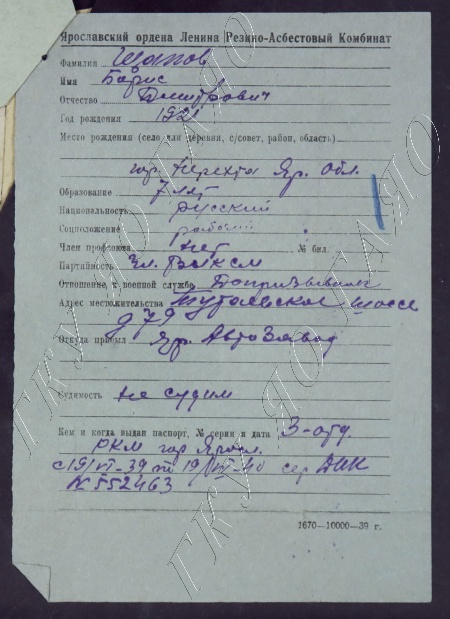 Ярославский ордена Ленина Резино-Асбестовый Комбинат
Фамилия Шапов
Имя Борис
Отчество Дмитрович
Год рождения 1921
Место рождения (село или деревня, с/совет, район, область)
гор. Нерехта Яр. Обл.
Образование 7 лет
Национальность русский
Соцположение рабочий
Член профсоюза нет № бил.
Партийность Чл. ВЛКСМ
Отношение к военной службе Допризывник
Адрес местожительства Тутаевское шоссе
д 79
Откуда прибыл Яр. Автозавод
Судимость не судим
Кем и когда выдан паспорт, № серия и дата 3-отд.
РКМ гор Яросл.
с 19/VI-39 по 19/VI-40 сер
N 552463
1670—10000—39 г.
ГКУ ЯО ГАЯО
ГКУ ЯО ГАЯО
ГКУ ЯО ГАЯО